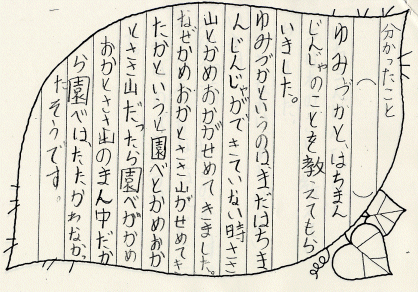 分かったこと
（　　　　）
ゆみづかと、はちまん
じんじゃのことを教えてもら
いきました。
ゆみづかというのは、まだはちま
んじんじゃができていない時ささ
山とかめおかがせめてきました。
なぜかめおかとささ山がせめてき
たかというと園べとかめおか
とささ山だったら園べがかめ
おかとささ山のまん中だか
ら園べは、たたかわなかっ
たそうです。